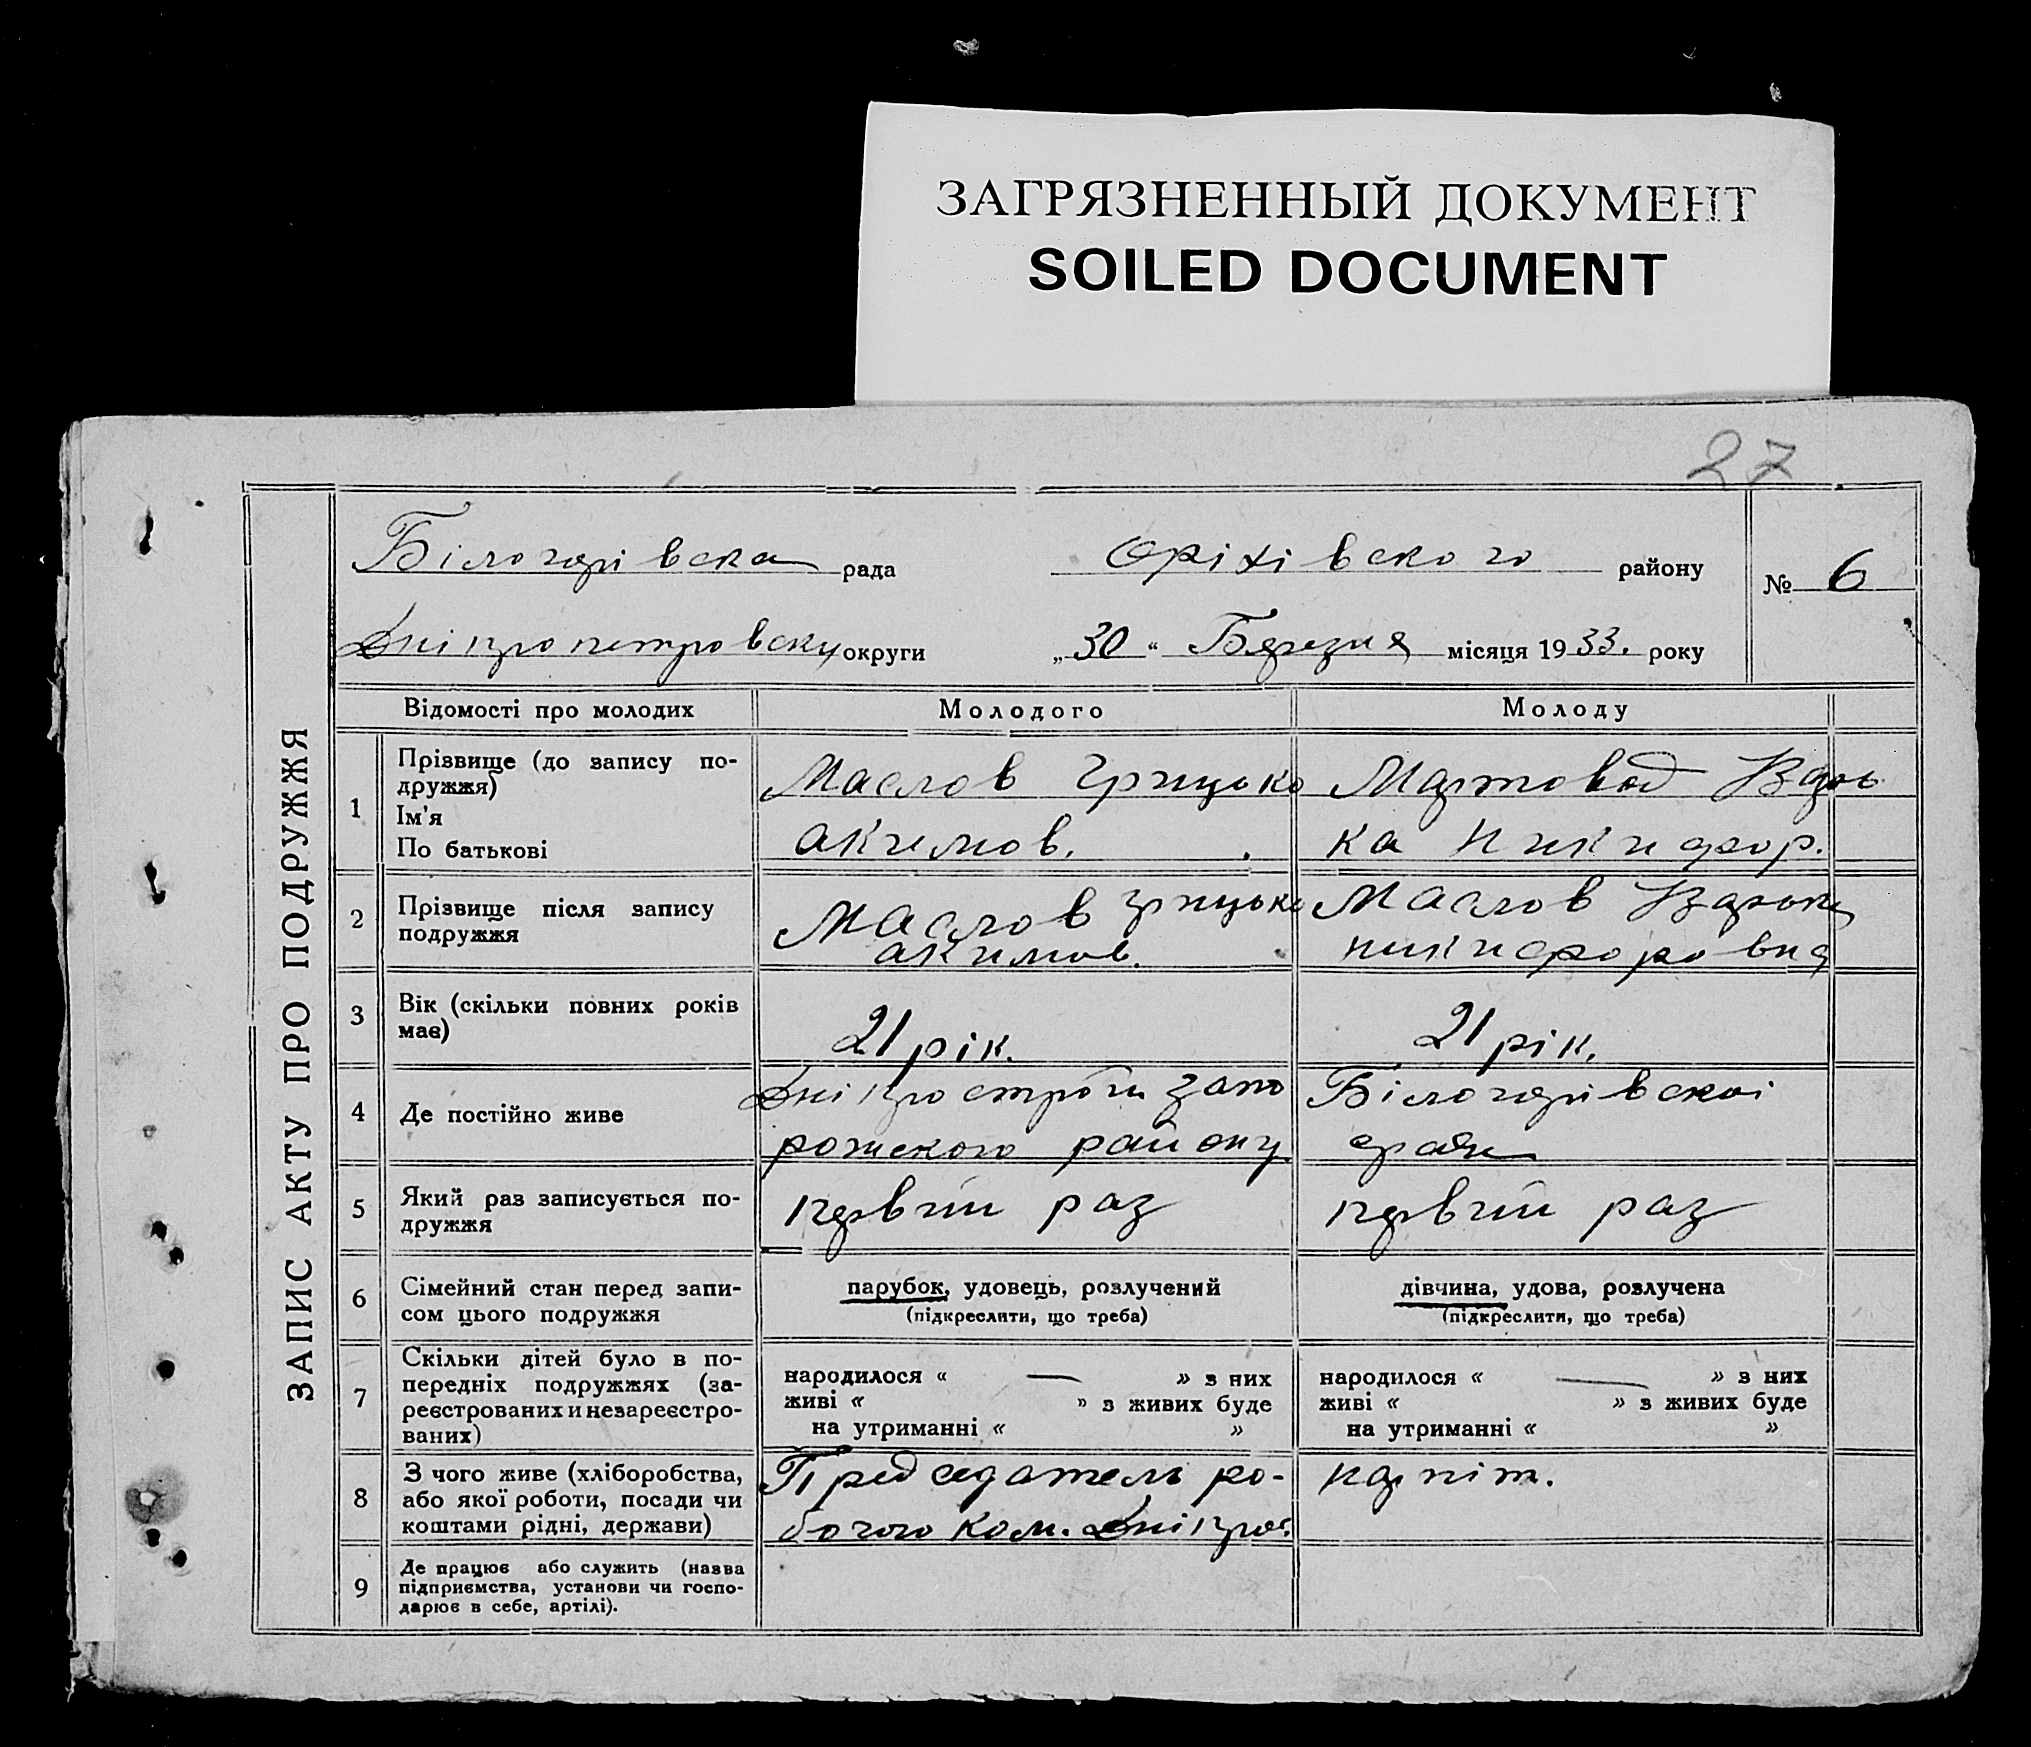 ЗАГРЯЗНЕННЫЙ ДОКУМЕНТ
SOILED DOCUMENT
27
ЗАПИС АКТУ ПРО ПОДРУЖЖЯ
Білогерівска рада Оріхівского району № 6
Дніпропетровску округи „30“ Березня місяця 1933. року
Відомості про молодих Молодого Молоду
1 Прізвище (до запису по-
дружжя)
Ім'я
По батькові
Маслов Грицько
Акимов.
Мартовод
ка Никифор.
2 Прізвище після запису
подружжя
Маслов Грицько
Акимов.
Маслов
Никифоровна
3 Вік (скільки повних років
має)
21 рік.
21 рік.
4 Де постійно живе
Дніпростроги Запо
рожского району
Білогерівскоі
5 Який раз записується по-
дружжя
первий раз
первий раз
6 Сімейний стан перед запи-
сом цього подружжя
парубок, удовець, розлучений
(підкреслити, що треба)
дівчина, удова, розлучена
(підкреслити, що треба)
7 Скільки дітей було в по-
передніх подружжях (за-
реєстрованих и незареєстро-
ваних)
народилося « — » з них
живі « » з живих буде
на утриманні « »
народилося « — » з них
живі « » з живих буде
на утриманні « »
8 З чого живе (хліборобства,
або якої роботи, посади чи
коштами рідні, держави)
Председатель ро-
бочого ком. Дніпрос.
9 Де працює або служить (назва
підприємства, установи чи госпо-
дарює в себе, артілі).